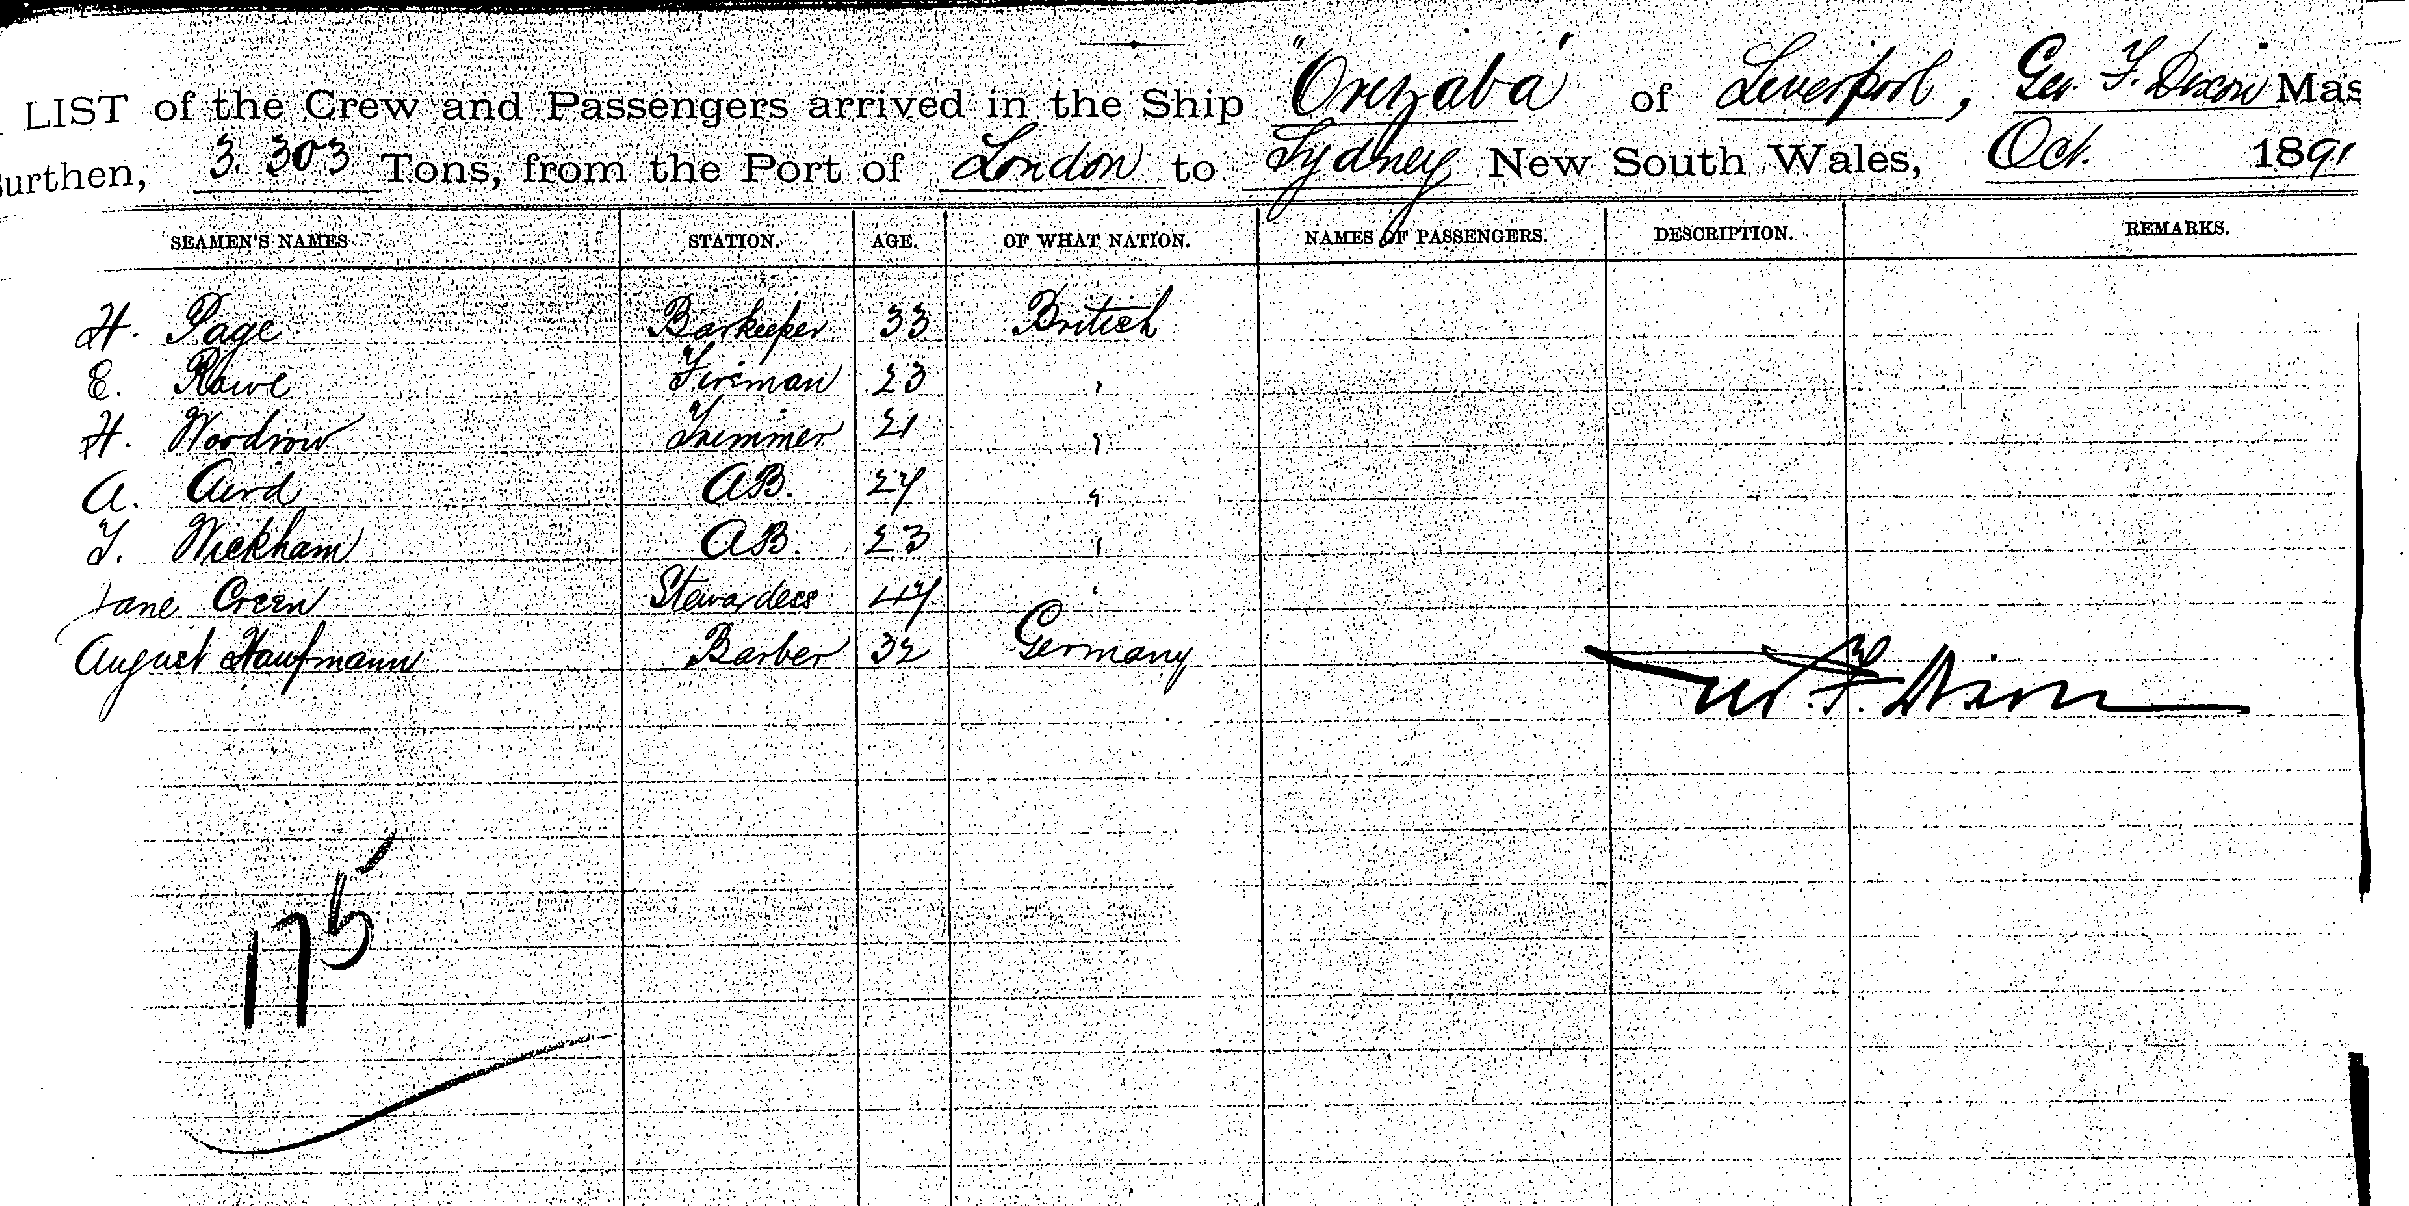 LIST of the Crew and Passengers arrived in the Ship "Orizaba" of Liverpool, Geo. F. Dixon Mas
Burthen, 3.303 Tons, from the Port of London to Sydney New South Wales, Oct. 1891
SEAMEN'S NAMES STATION. AGE. OF WHAT NATION. NAMES OF PASSENGERS. DESCRIPTION. REMARKS.
H. Page Barkeeper 33 British
E. Rowe Fireman 23 "
H. Woodrow Trimmer 21 "
A. Aird AB. 24 "
T. Wickham AB. 23 "
Jane Green Stewardess 44 "
August Kaufmann Barber 32 Germany
Geo. F. Dixon
175